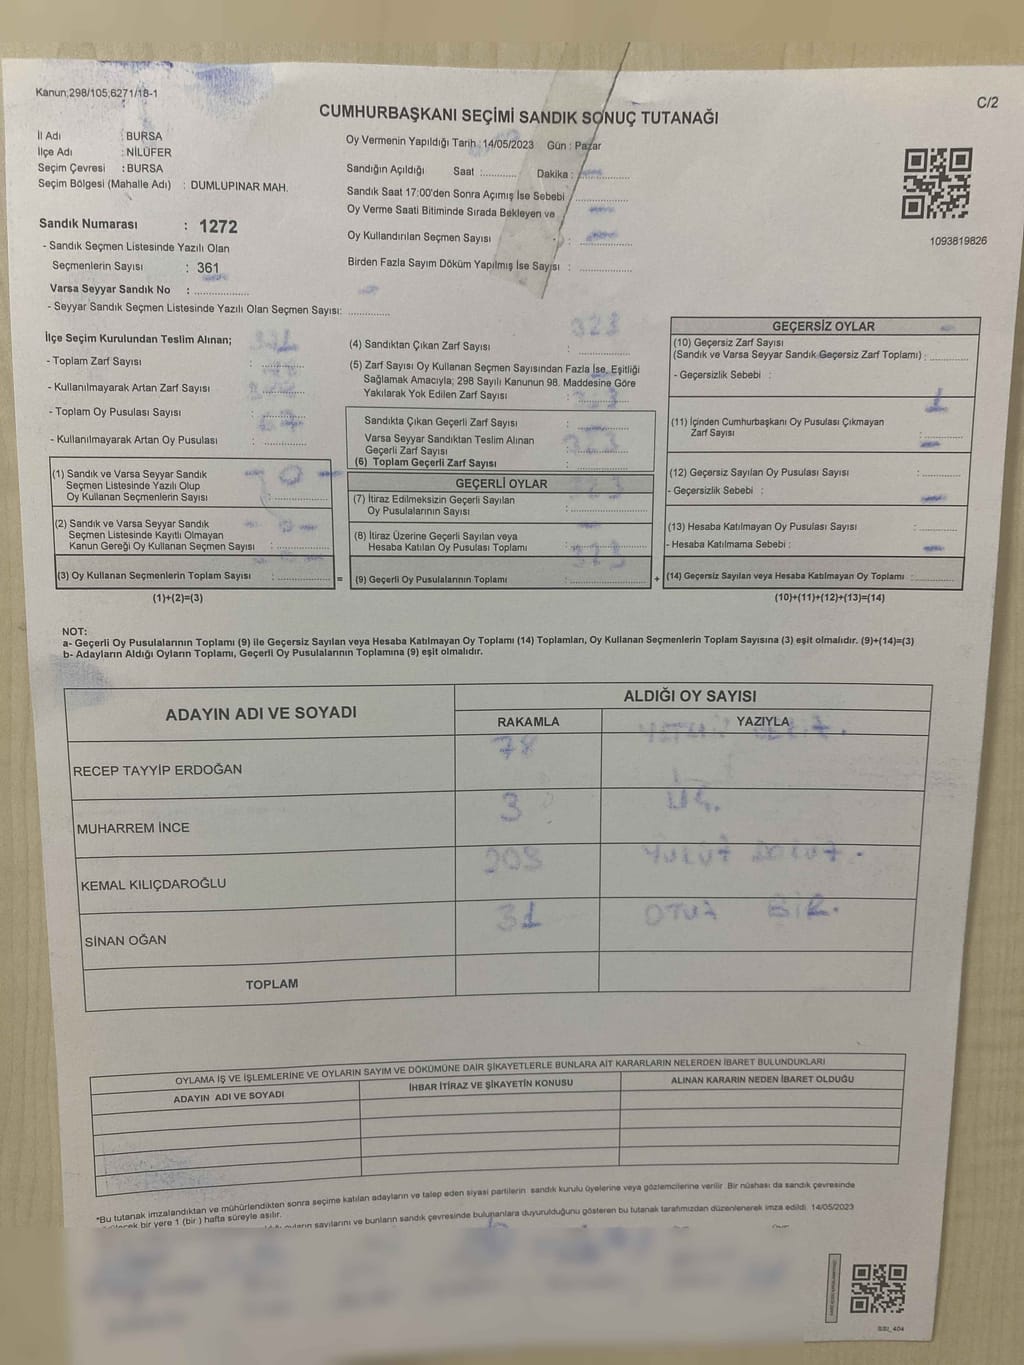 Kanun;298/105;6271/18-1
C/2
CUMHURBAŞKANI SEÇİMİ SANDIK SONUÇ TUTANAĞI
İl Adı : BURSA
İlçe Adı : NİLÜFER
Seçim Çevresi : BURSA
Seçim Bölgesi (Mahalle Adı) : DUMLUPINAR MAH.
Oy Vermenin Yapıldığı Tarih : 14/05/2023 Gün : Pazar
Sandığın Açıldığı Saat :............ Dakika :
Sandık Saat 17:00'den Sonra Açımış İse Sebebi
Oy Verme Saati Bitiminde Sırada Bekleyen ve
Oy Kullandırılan Seçmen Sayısı :
Birden Fazla Sayım Döküm Yapılmış İse Sayısı :
1093819826
Sandık Numarası : 1272
- Sandık Seçmen Listesinde Yazılı Olan
Seçmenlerin Sayısı : 361
Varsa Seyyar Sandık No :
- Seyyar Sandık Seçmen Listesinde Yazılı Olan Seçmen Sayısı:
İlçe Seçim Kurulundan Teslim Alınan;
- Toplam Zarf Sayısı :
- Kullanılmayarak Artan Zarf Sayısı :
- Toplam Oy Pusulası Sayısı :
- Kullanılmayarak Artan Oy Pusulası :
(1) Sandık ve Varsa Seyyar Sandık
Seçmen Listesinde Yazılı Olup
Oy Kullanan Seçmenlerin Sayısı :
(2) Sandık ve Varsa Seyyar Sandık
Seçmen Listesinde Kayıtlı Olmayan
Kanun Gereği Oy Kullanan Seçmen Sayısı :
(3) Oy Kullanan Seçmenlerin Toplam Sayısı : =
(1)+(2)=(3)
323
(4) Sandıktan Çıkan Zarf Sayısı :
(5) Zarf Sayısı Oy Kullanan Seçmen Sayısından Fazla İse, Eşitliği
Sağlamak Amacıyla; 298 Sayılı Kanunun 98. Maddesine Göre
Yakılarak Yok Edilen Zarf Sayısı :
Sandıkta Çıkan Geçerli Zarf Sayısı :
Varsa Seyyar Sandıktan Teslim Alınan
Geçerli Zarf Sayısı :
(6) Toplam Geçerli Zarf Sayısı :
GEÇERLİ OYLAR
(7) İtiraz Edilmeksizin Geçerli Sayılan
Oy Pusulalarının Sayısı :
(8) İtiraz Üzerine Geçerli Sayılan veya
Hesaba Katılan Oy Pusulası Toplamı :
(9) Geçerli Oy Pusulalarının Toplamı : +
GEÇERSİZ OYLAR
(10) Geçersiz Zarf Sayısı
(Sandık ve Varsa Seyyar Sandık Geçersiz Zarf Toplamı) :
- Geçersizlik Sebebi :
1
(11) İçinden Cumhurbaşkanı Oy Pusulası Çıkmayan
Zarf Sayısı :
(12) Geçersiz Sayılan Oy Pusulası Sayısı :
- Geçersizlik Sebebi :
(13) Hesaba Katılmayan Oy Pusulası Sayısı :
- Hesaba Katılmama Sebebi :
(14) Geçersiz Sayılan veya Hesaba Katılmayan Oy Toplamı :
(10)+(11)+(12)+(13)=(14)
NOT:
a- Geçerli Oy Pusulalarının Toplamı (9) ile Geçersiz Sayılan veya Hesaba Katılmayan Oy Toplamı (14) Toplamları, Oy Kullanan Seçmenlerin Toplam Sayısına (3) eşit olmalıdır. (9)+(14)=(3)
b- Adayların Aldığı Oyların Toplamı, Geçerli Oy Pusulalarının Toplamına (9) eşit olmalıdır.
ADAYIN ADI VE SOYADI
ALDIĞI OY SAYISI
RAKAMLA YAZIYLA
78
RECEP TAYYİP ERDOĞAN
3 ÜÇ.
MUHARREM İNCE
KEMAL KILIÇDAROĞLU
31 OTUZ BİR.
SİNAN OĞAN
TOPLAM
OYLAMA İŞ VE İŞLEMLERİNE VE OYLARIN SAYIM VE DÖKÜMÜNE DAİR ŞİKAYETLERLE BUNLARA AİT KARARLARIN NELERDEN İBARET BULUNDUKLARI
ADAYIN ADI VE SOYADI İHBAR İTİRAZ VE ŞİKAYETİN KONUSU ALINAN KARARIN NEDEN İBARET OLDUĞU
*Bu tutanak imzalandıktan ve mühürlendikten sonra seçime katılan adayların ve talep eden siyasi partilerin sandık kurulu üyelerine veya gözlemcilerine verilir. Bir nüshası da sandık çevresinde
bir yere 1 (bir) hafta süreyle asılır.
sayılarını ve bunların sandık çevresinde bulunanlara duyurulduğunu gösteren bu tutanak tarafımızdan düzenlenerek imza edildi. 14/05/2023